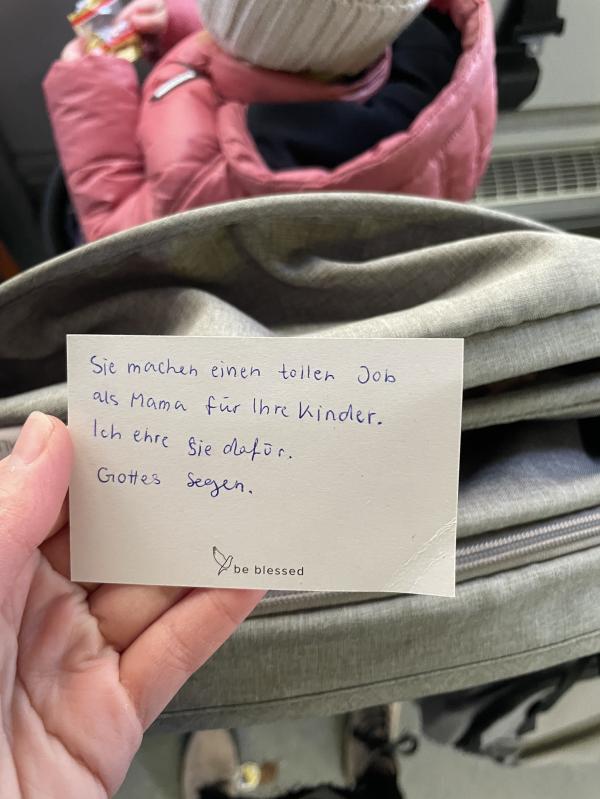 Sie machen einen tollen Job
als Mama für Ihre Kinder.
Ich ehre Sie dafür.
Gottes Segen.
be blessed